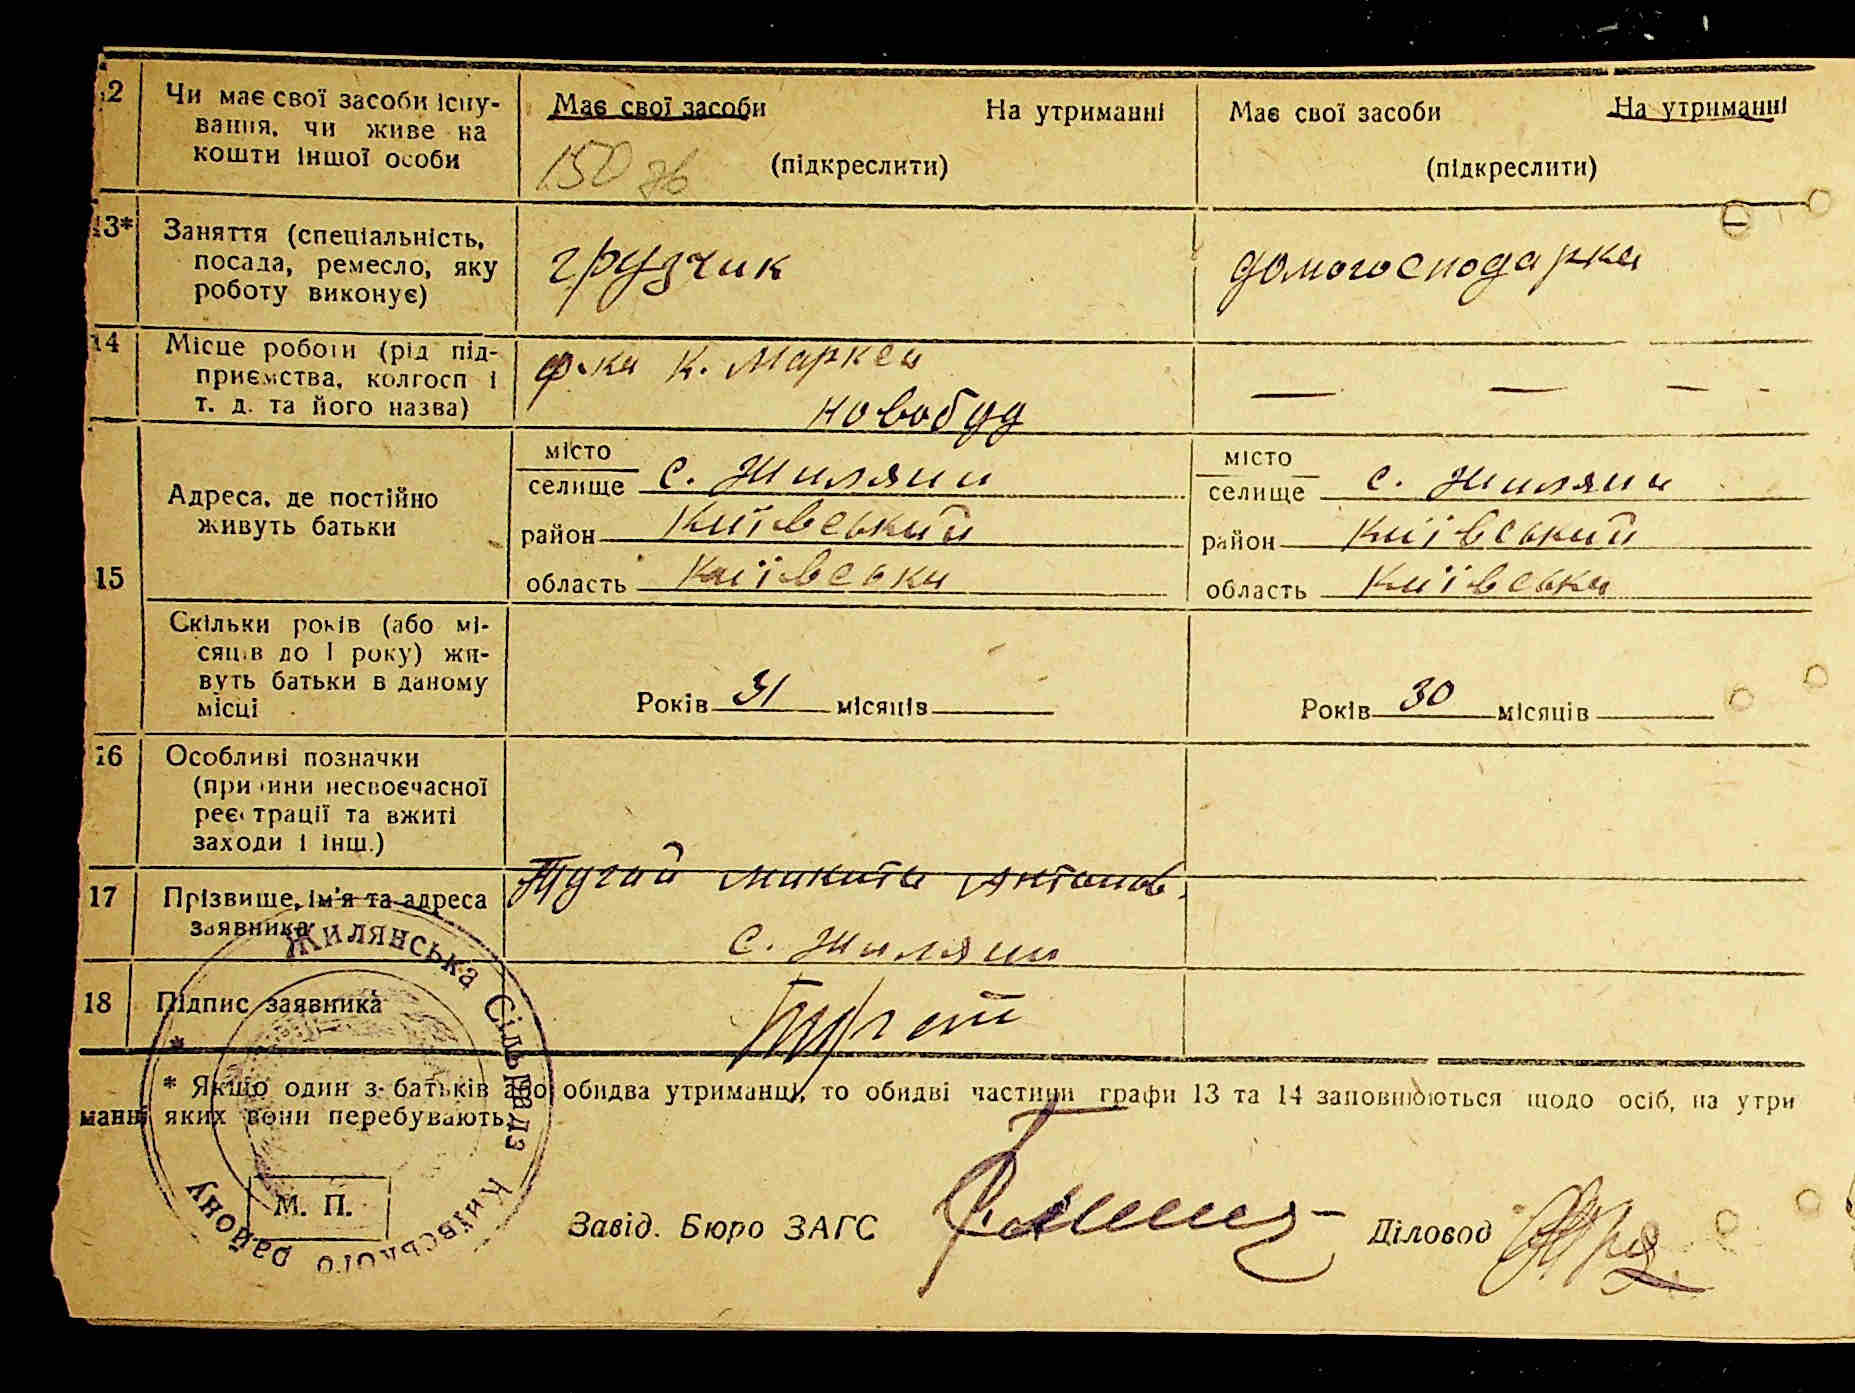 12 Чи має свої засоби існу-
вання, чи живе на
кошти іншої особи
Має свої засоби На утриманні
(підкреслити)
150
Має свої засоби На утриманні
(підкреслити)
13* Заняття (спеціальність,
посада, ремесло, яку
роботу виконує)
грузчик
домогосподарка
14 Місце роботи (рід під-
приємства, колгосп і
т. д. та його назва)
ф-ка К. Маркса
новобуд
— — —
15
Адреса, де постійно
живуть батьки
місто
селище с. Жиляни
район Київський
область Київська
місто
селище с. Жиляни
район Київський
область Київська
Скільки років (або мі-
сяців до 1 року) жи-
вуть батьки в даному
місці
Років 31 місяців
Років 30 місяців
16 Особливі позначки
(причини несвоєчасної
реєстрації та вжиті
заходи і інш.)
17 Прізвище, ім'я та адреса
заявника
Тугай Микита Антонов.
с. Жиляни
18 Підпис заявника
* Якщо один з батьків або обидва утриманці, то обидві частини графи 13 та 14 заповнюються щодо осіб, на утри
манні яких вони перебувають.
Жилянська Сільрада Київського району
М. П.
Завід. Бюро ЗАГС
Діловод